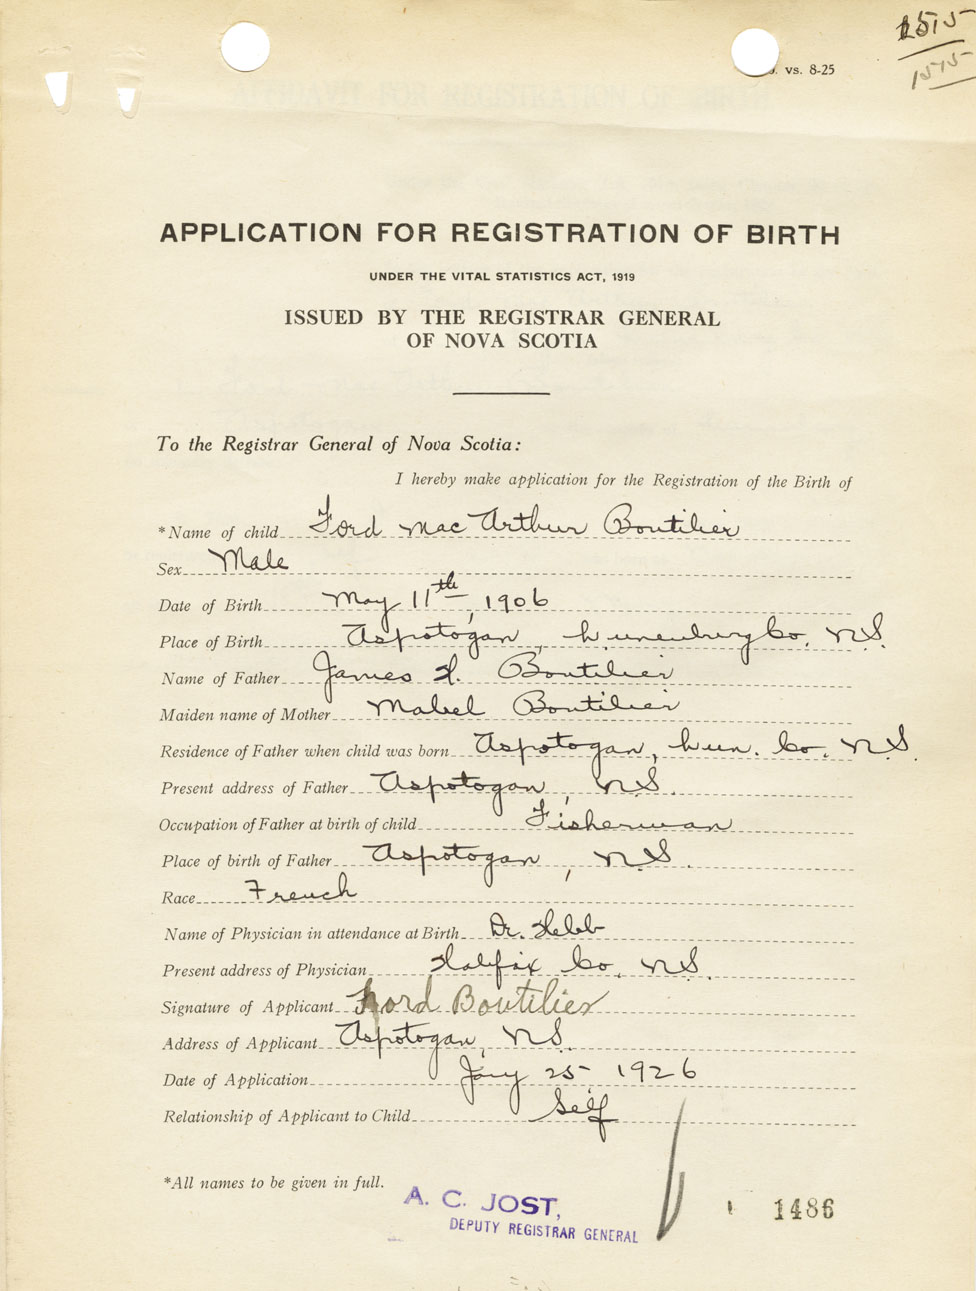 1515
1515
vs. 8-25
APPLICATION FOR REGISTRATION OF BIRTH
UNDER THE VITAL STATISTICS ACT, 1919
ISSUED BY THE REGISTRAR GENERAL
OF NOVA SCOTIA
To the Registrar General of Nova Scotia:
I hereby make application for the Registration of the Birth of
*Name of child Ford Mac Arthur Boutilier
Sex Male
Date of Birth May 11th, 1906
Place of Birth Aspotogan, Lunenburg Co. N.S.
Name of Father James H. Boutilier
Maiden name of Mother Mabel Boutilier
Residence of Father when child was born Aspotogan, Lun. Co. N.S.
Present address of Father Aspotogan, N.S.
Occupation of Father at birth of child Fisherman
Place of birth of Father Aspotogan, N.S.
Race French
Name of Physician in attendance at Birth Dr. Hebb
Present address of Physician Halifax Co. N.S.
Signature of Applicant Ford Boutilier
Address of Applicant Aspotogan, N.S.
Date of Application Jany 25 1926
Relationship of Applicant to Child Self
*All names to be given in full.
A. C. JOST,
DEPUTY REGISTRAR GENERAL
1486